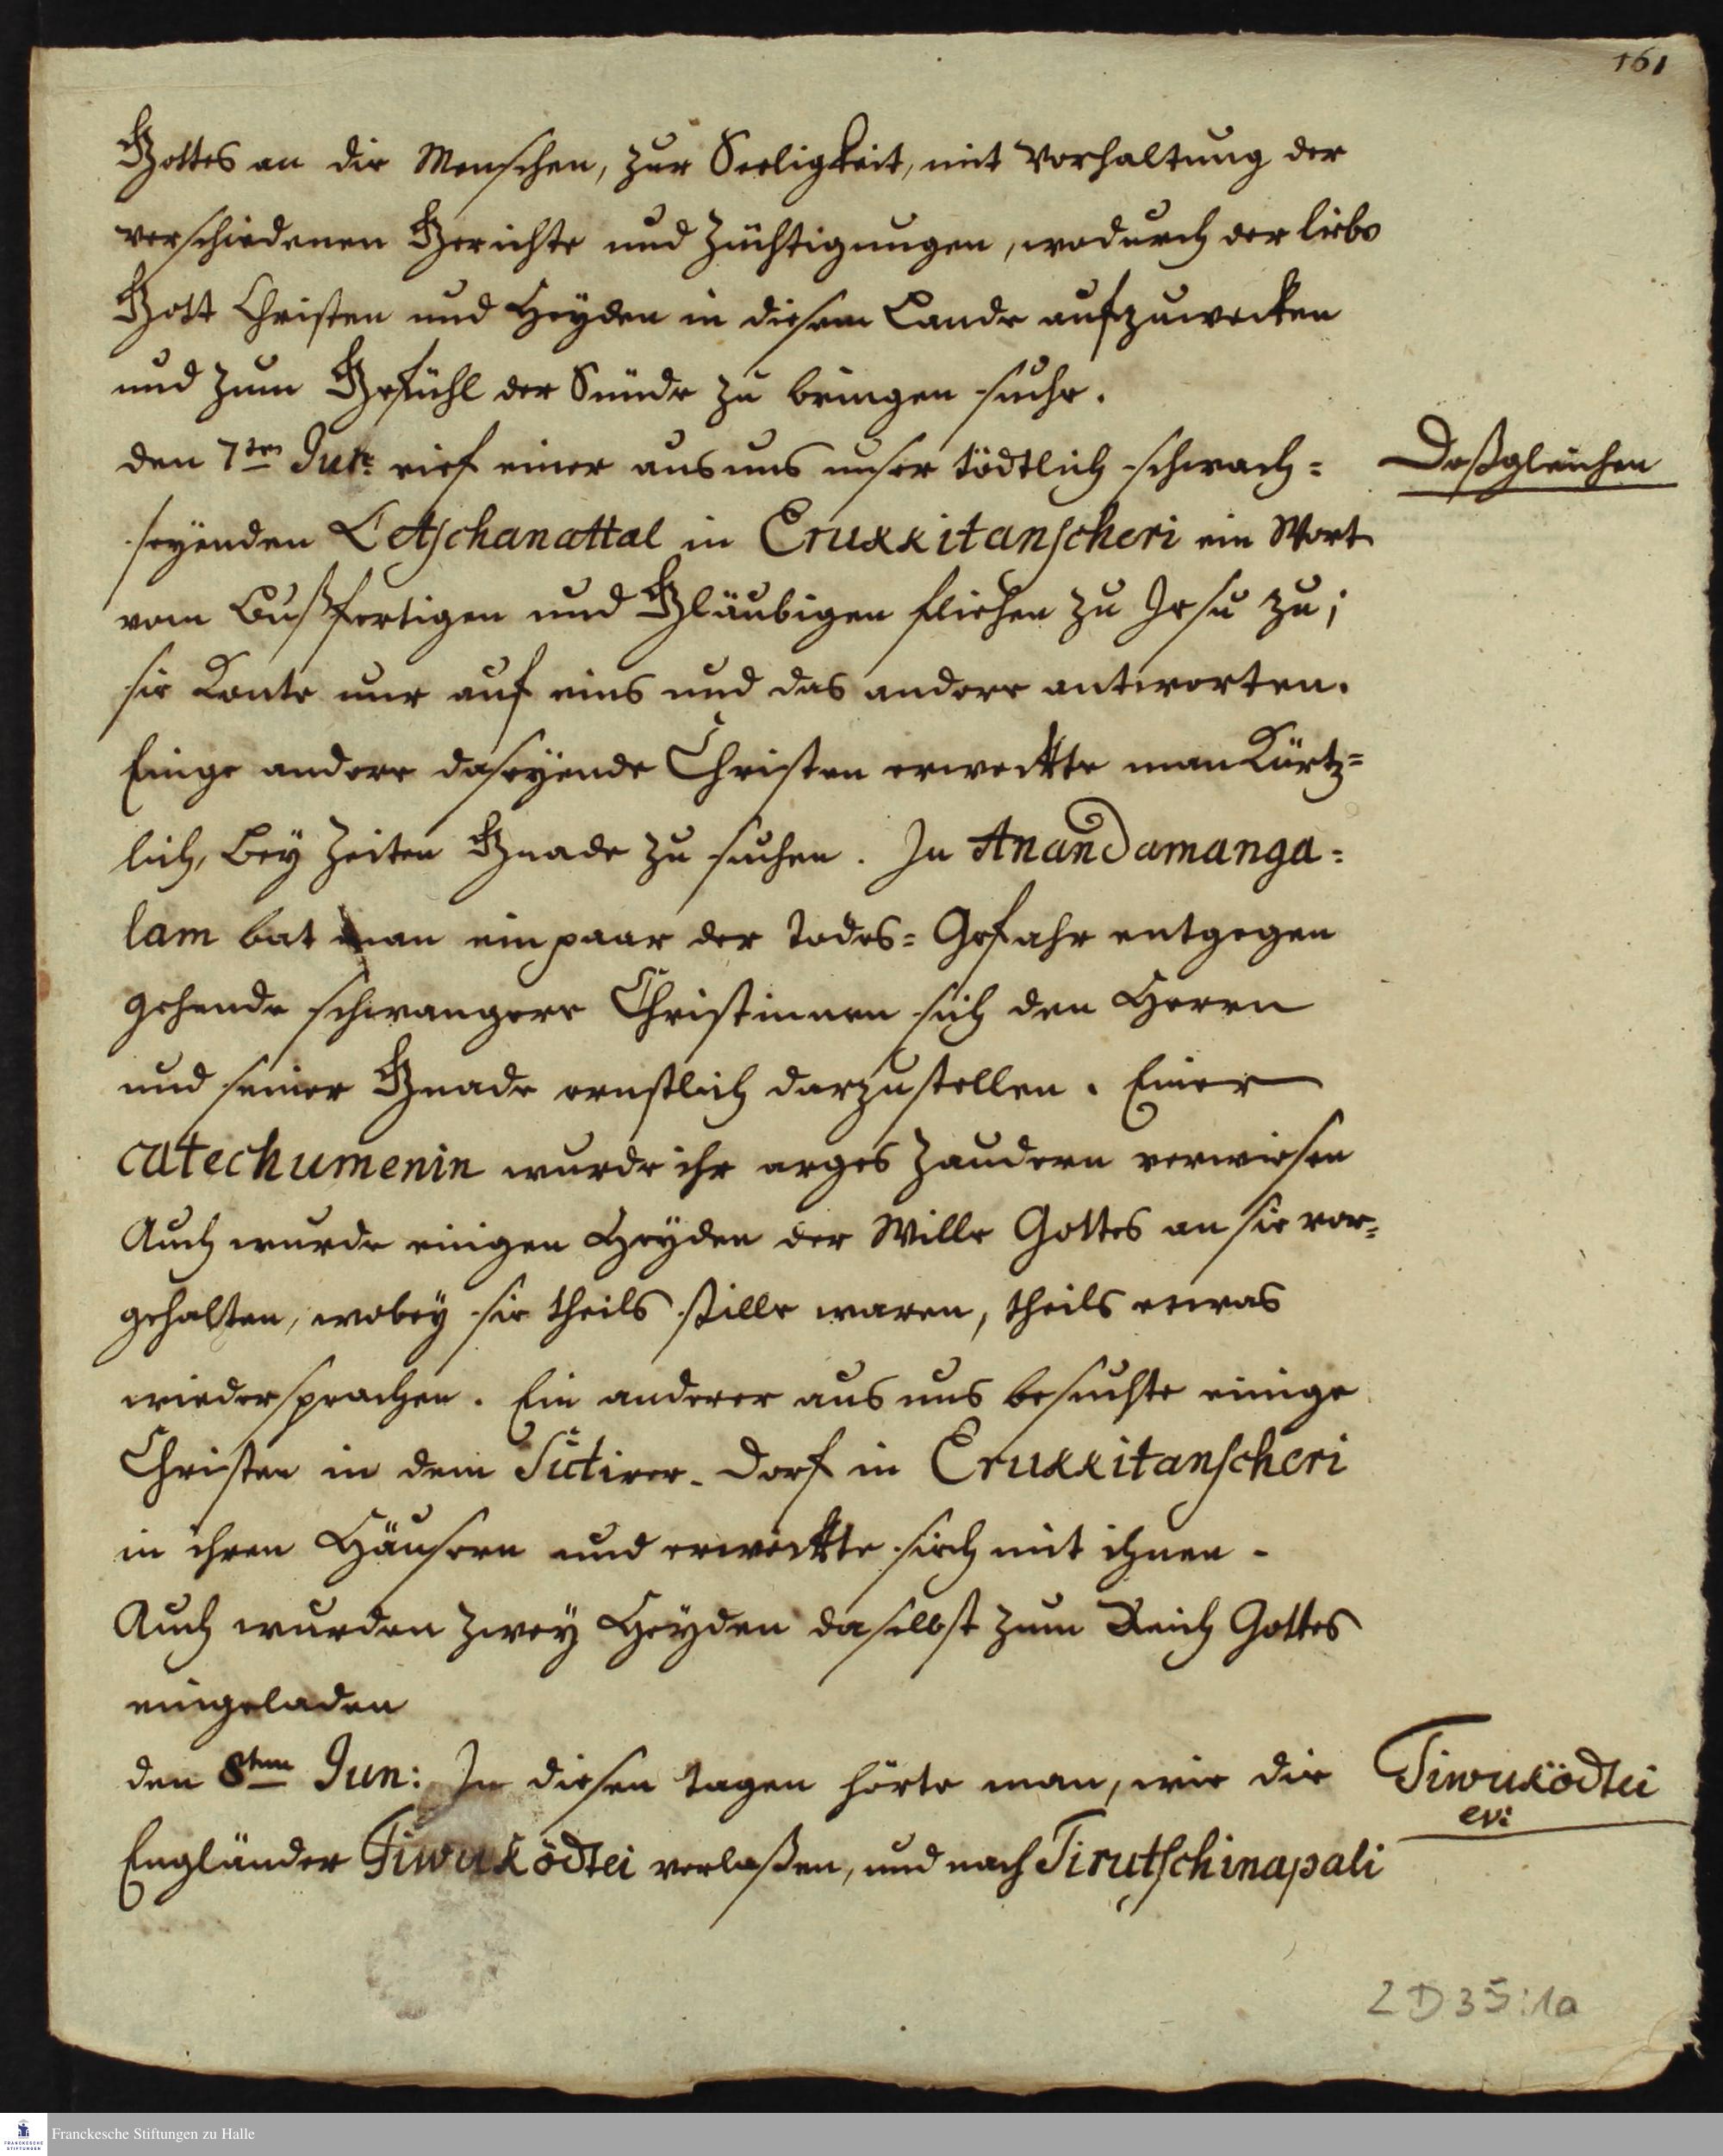 161
Gottes an die Menschen, zur Seeligkeit, mit Vorhaltung der
verschiedenen Gerichte und Züchtigungen, wodurch der liebe
Gott Christen und Heyden in diesem Lande aufzuwecken
und zum Gefühl der Sünde zu bringen suche.
den 7ten Jun: rief einer aus uns unser tödtlich schwach=
Deßgleichen
seyenden Letschanattal in Erukkitanscheri ein Wort
vom Bußfertigen und Gläubigen fliehen zu Jesu zu;
sie konte nur auf eins und das andere antworten.
Einge andere daseyende Christen erweckte man kürtz=
lich, bey Zeiten Gnade zu suchen. In Anandamanga=
lam bat man ein paar der Todes=Gefahr entgegen
gehende schwangere Christinnen sich den Herrn
und seiner Gnade ernstlich darzustellen. Einer
catechumenin wurde ihr arges Zaudern verwiesen
Auch wurde einigen Heyden der Wille Gottes an sie vor=
gehalten, wobey sie theils stille waren, theils etwas
wiedersprachen. Ein anderer aus uns besuchte einige
Christen in dem Sictirer-Dorf in Erukkitanscheri
in ihren Häusern und erweckte sich mit ihnen.
Auch wurden zwey Heyden daselbst zum Reich Gottes
eingeladen
den 8ten Jun: In diesen Tagen hörte man, wie die
Tiwuködtei
ev:
Engländer Tiwuködtei verlaßen, und nach Tirutschinapali
2 D 35:1a
Franckesche Stiftungen zu Halle